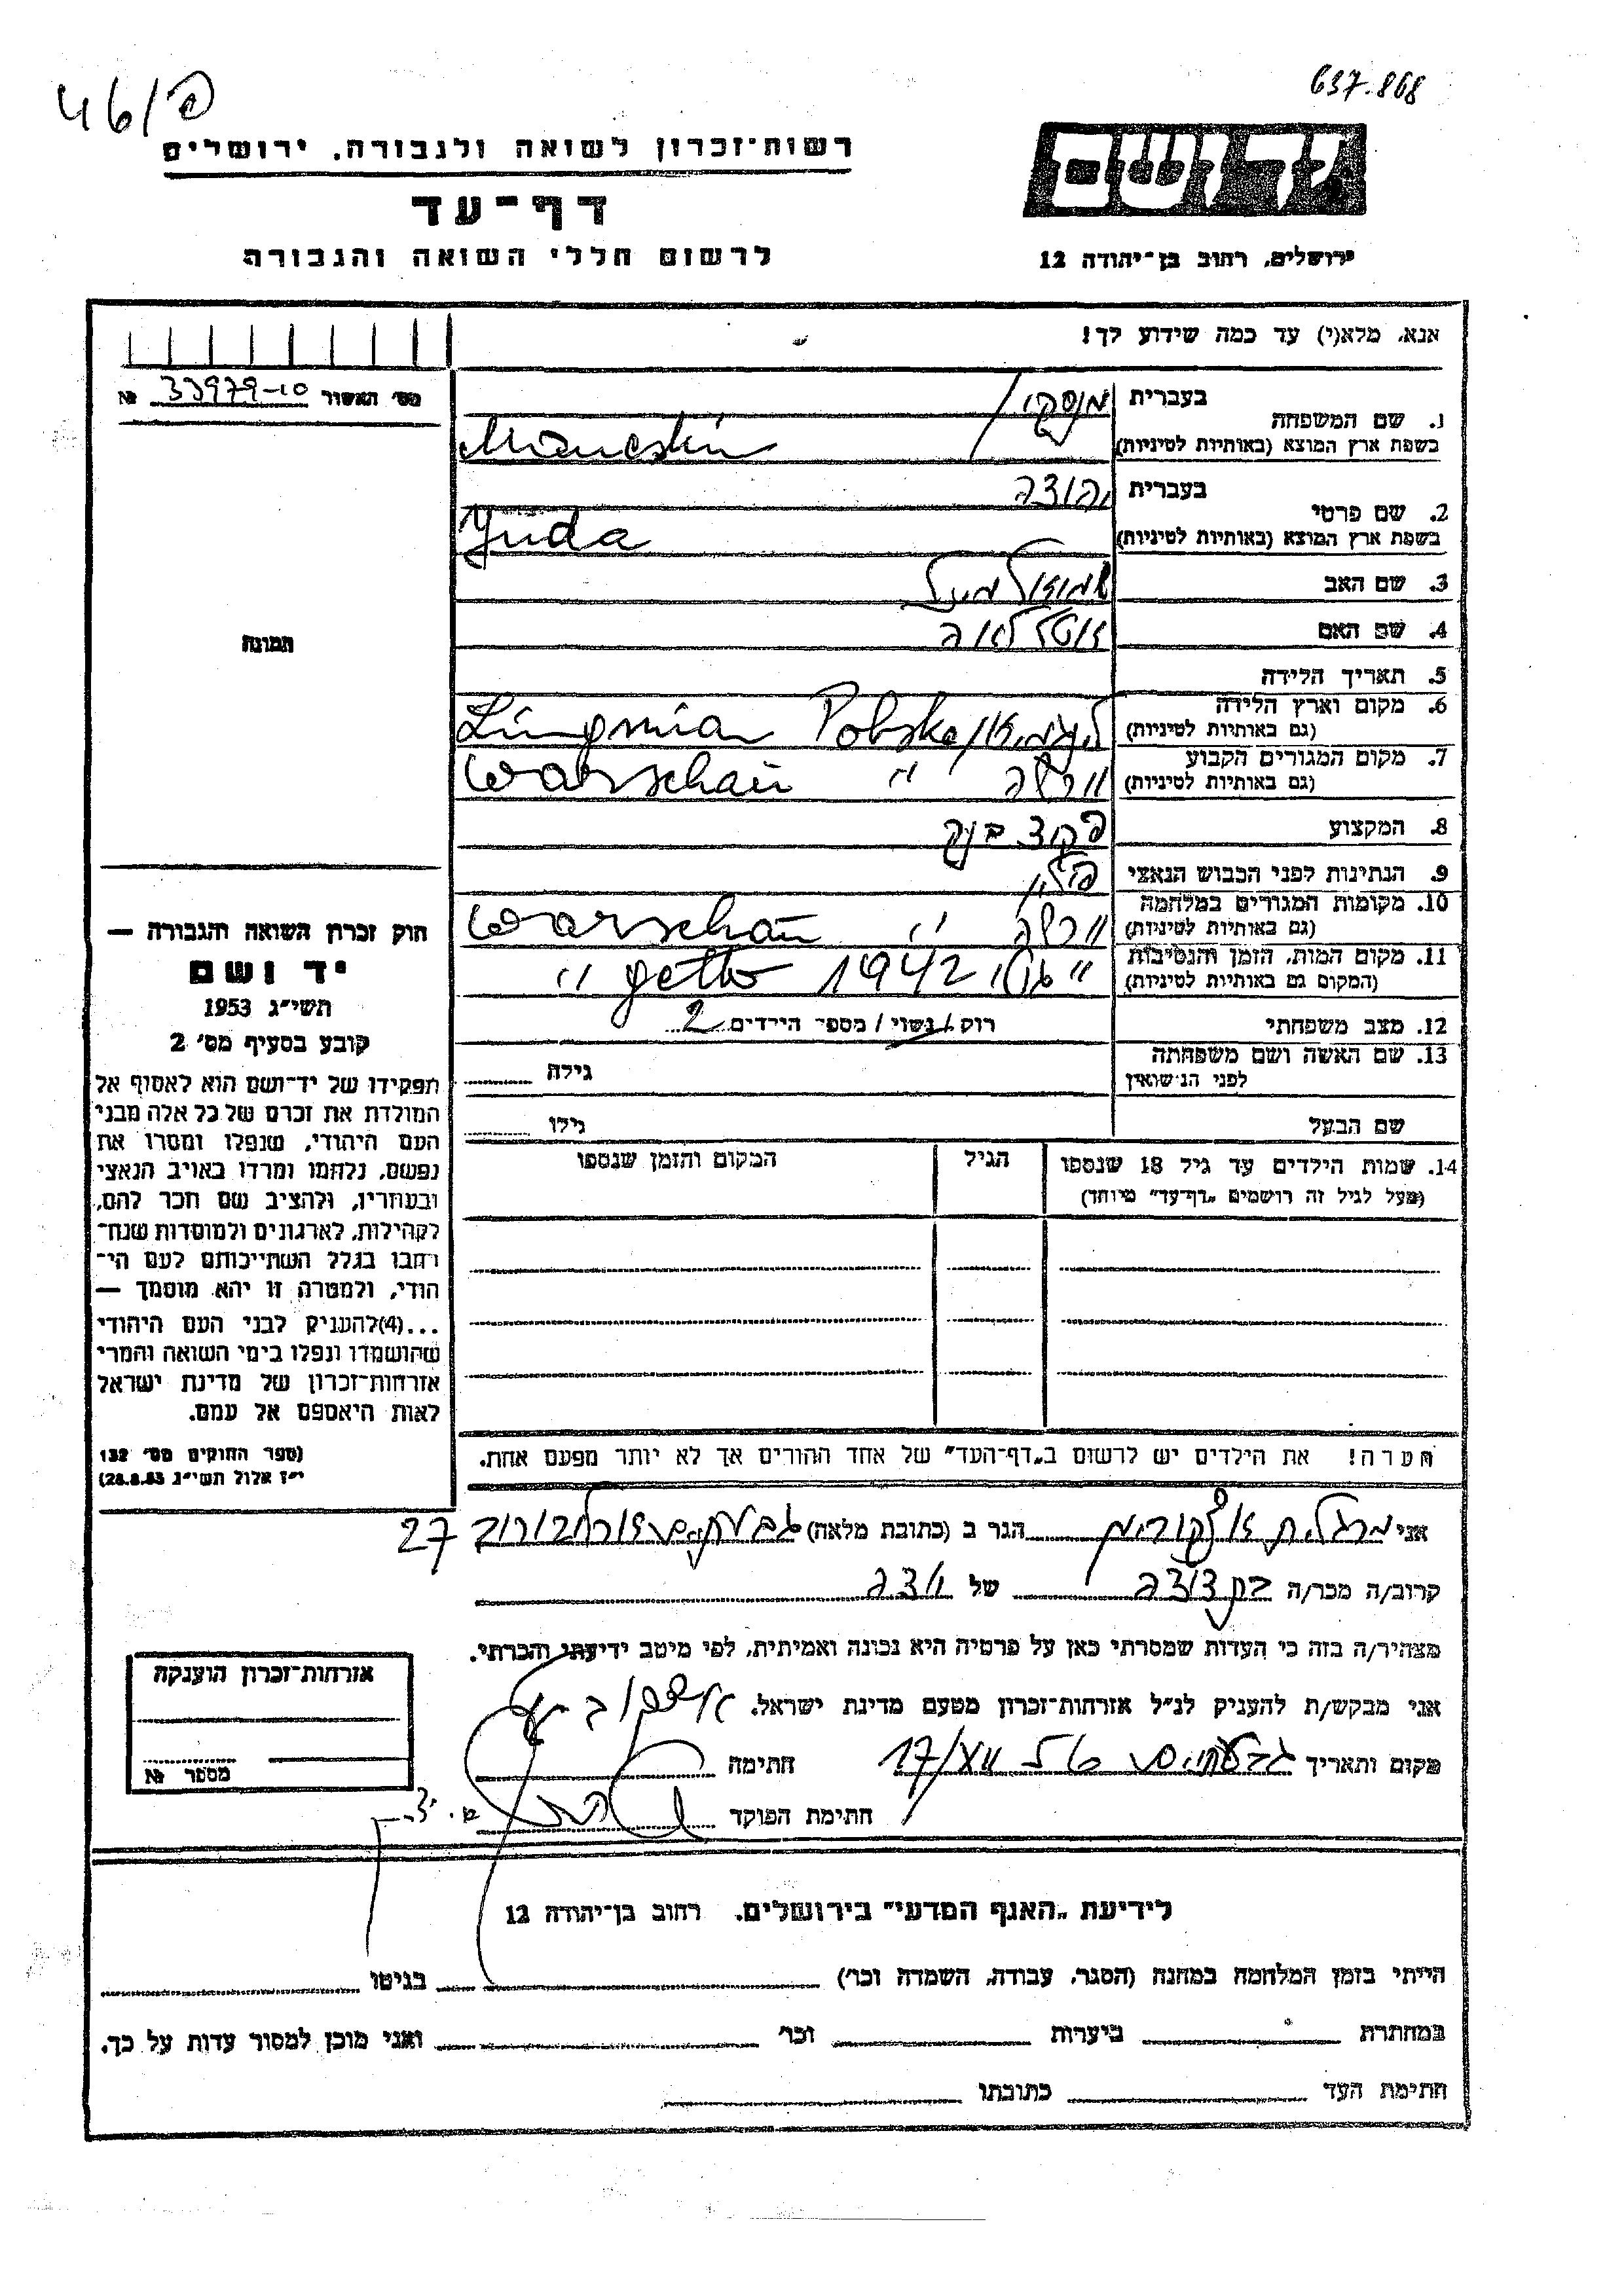 46/פ
637.868
רשות־זכרון לשואה ולגבורה, ירושלים
דף־עד
לרשום חללי השואה והגבורה
יד ושם
ירושלים, רחוב בן־יהודה 12
אנא, מלא(י) עד כמה שידוע לך!
מס׳ האשור 33979-10 №
1. שם המשפחה
בעברית
בשפת ארץ המוצא (באותיות לטיניות)
2. שם פרטי
בעברית יהודה
בשפת ארץ המוצא (באותיות לטיניות) Juda
3. שם האב שמואל
4. שם האם
5. תאריך הלידה
6. מקום וארץ הלידה
(גם באותיות לטיניות) Polska
7. מקום המגורים הקבוע
(גם באותיות לטיניות) ורשה " Warschau
8. המקצוע פקיד בנק
9. הנתינות לפני הכבוש הנאצי פולין
10. מקומות המגורים במלחמה
(גם באותיות לטיניות) ורשה " Warschau
11. מקום המות, הזמן והנסיבות
(המקום גם באותיות לטיניות) " גטו 1942 getto "
12. מצב משפחתי רווק / נשוי / מספר הילדים 2
13. שם האשה ושם משפחתה
לפני הנישואין
גילה
שם הבעל
גילו
14. שמות הילדים עד גיל 18 שנספו
(מעל לגיל זה רושמים „דף־עד” מיוחד)
הגיל
המקום והזמן שנספו
הערה! את הילדים יש לרשום ב„דף־העד” של אחד ההורים אך לא יותר מפעם אחת.
תמונה
חוק זכרון השואה והגבורה —
יד ושם
תשי״ג 1953
קובע בסעיף מס׳ 2
תפקידו של יד־ושם הוא לאסוף אל
המולדת את זכרם של כל אלה מבני
העם היהודי, שנפלו ומסרו את
נפשם, נלחמו ומרדו באויב הנאצי
ובעוזריו, ולהציב שם וזכר להם,
לקהילות, לארגונים ולמוסדות שנח־
רבו בגלל השתייכותם לעם הי־
הודי, ולמטרה זו יהא מוסמך —
...(4)להעניק לבני העם היהודי
שהושמדו ונפלו בימי השואה והמרי
אזרחות־זכרון של מדינת ישראל
לאות היאספם אל עמם.
(ספר החוקים מס׳ 132
י״ז אלול תשי״ג 28.8.53)
אני מרגלית הגר ב (כתובת מלאה) גבעתיים 27
קרוב/ה מכר/ה בת דודה של יודה
מצהיר/ה בזה כי העדות שמסרתי כאן על פרטיה היא נכונה ואמיתית, לפי מיטב ידיעתי והכרתי.
אני מבקש/ת להעניק לנ״ל אזרחות־זכרון מטעם מדינת ישראל.
מקום ותאריך גבעתיים 17/
חתימה
חתימת הפוקד
אזרחות־זכרון הוענקה
מספר №
לידיעת „האגף המדעי” בירושלים, רחוב בן־יהודה 12
הייתי בזמן המלחמה במחנה (הסגר, עבודה, השמדה וכו׳)
בגיטו
במחתרת
ביערות
וכו׳
ואני מוכן למסור עדות על כך.
חתימת העד
כתובתו